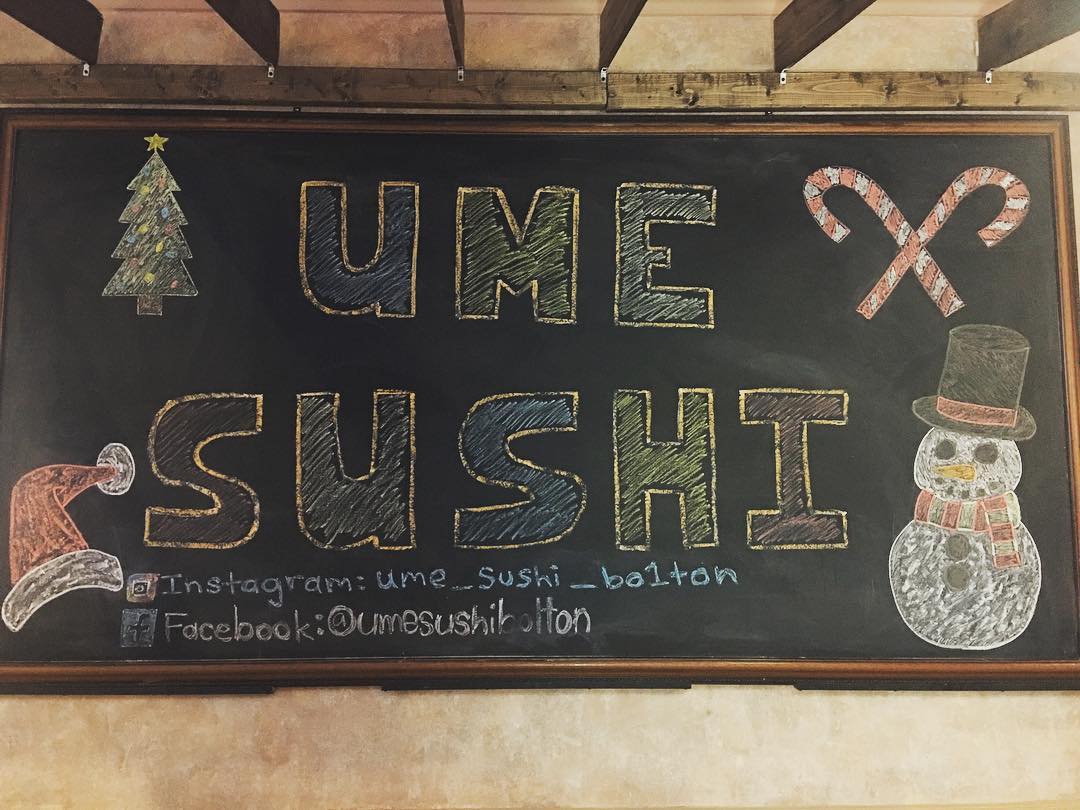 UME
SUSHI
Instagram: ume_sushi_bolton
Facebook: @umesushibolton